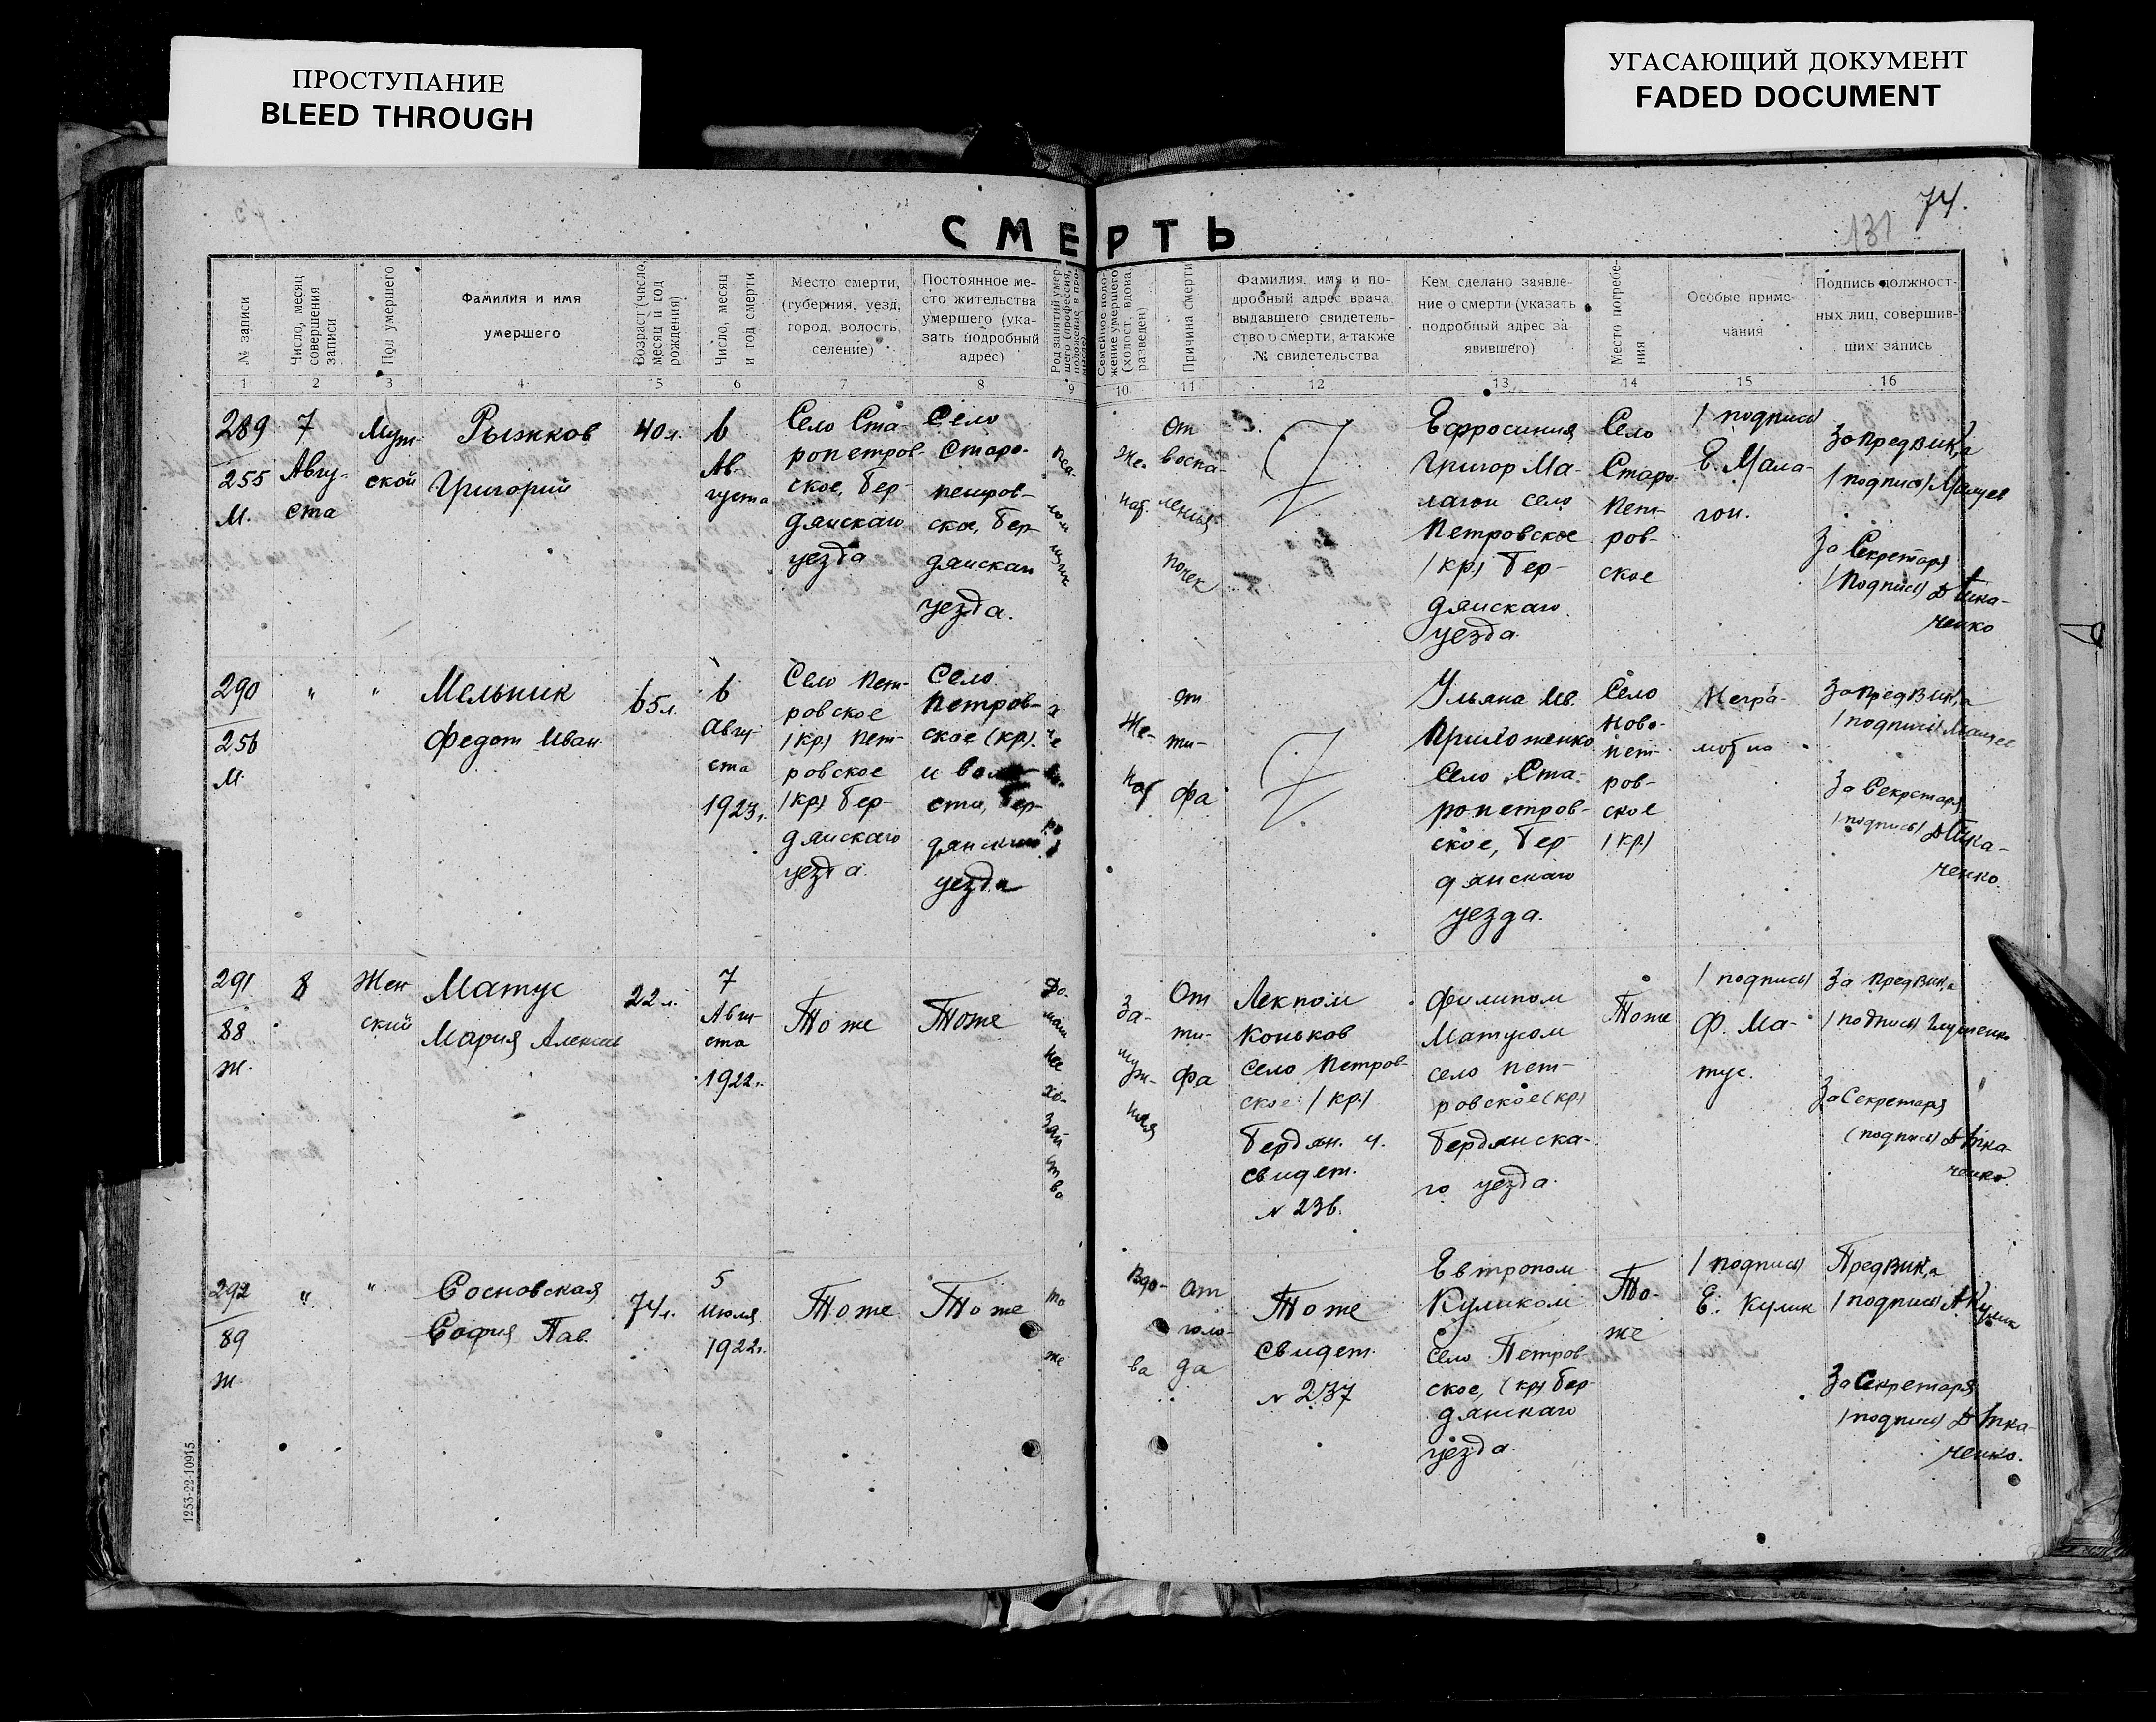 ПРОСТУПАНИЕ
BLEED THROUGH
УГАСАЮЩИЙ ДОКУМЕНТ
FADED DOCUMENT
74.
131
СМЕРТЬ
№ записи
Число, месяц
совершения
записи
Пол умершего
Фамилия и имя
умершего
Возраст (число,
месяц и год
рождения)
Число, месяц
и год смерти
Место смерти,
(губерния, уезд,
город, волость,
селение)
Постоянное ме-
сто жительства
умершего (ука-
зать подробный
адрес)
Род занятий умер-
шего (профессия,
положение в про-
Семейное поло-
жение умершего
(холост, вдова,
разведен)
Причина смерти
Фамилия, имя и по-
дробный адрес врача,
выдавшего свидетель-
ство о смерти, а также
№ свидетельства
Кем сделано заявле-
ние о смерти (указать
подробный адрес за-
явившего)
Место погребе-
ния
Особые приме-
чания
Подпись должност-
ных лиц, совершив-
ших запись
1 2 3 4 5 6 7 8 9 10 11 12 13 14 15 16
289
255
М.
7
Авгу-
ста
Муж-
ской
Рыжков
Григорий
40 л.
6
Ав-
густа
Село Ста-
ропетров-
ское, Бер-
дянскаго
уезда
Село
Старо-
петров-
ское, Бер-
дянскаго
уезда.
Же-
нат
От
воспа-
ления
почек
Ефросиния
Григор Ма-
лагон село
Петровское
/кр/ Бер-
дянскаго
уезда.
Село
Старо-
Пет-
ров-
ское
/подпись/
Е. Мала-
гон.
За предвик,а
/подпись/
За Секретаря
/подпись/ Д Тка-
ченко
290
256
М
"
"
Мельник
Федот Иван.
65 л.
6
Авгу-
ста
1923 г.
Село Пет-
ровское
/кр/ Пет-
ровское
/кр/ Бер-
дянскаго
уезда.
Село
Петров-
ское (кр).
и волос
сти, Бер-
дянскаго
уезда
Же-
нат
От
ти-
фа
Ульяна Ив.
Приложенко
Село Ста-
ропетров-
ское, Бер-
дянскаго
уезда.
Село
Ново-
пет-
ров-
ское
/кр/
Негра-
мотна
За предвик,а
/подпись/
За Секретаря
/подпись/ Д Тка-
ченко.
291
88
Ж.
8
Жен
ский
Матус
Мария Алексее
22 л.
7
Авгу-
ста
1922 г.
Тоже
Тоже
До-
маш
нее
хо-
зяй
ст
во
За-
муж-
няя
От
ти-
фа
Лекпом
Коньков
село Петров-
ское /кр/
Бердян. у.
свидет.
№ 236.
Филипом
Матусом
село Пет-
ровское (кр)
Бердянска-
го уезда.
Тоже
/подпись/
Ф. Ма-
тус.
За предвик,а
/подпись/ Глущенко
За Секретаря
(подпись) Д Тка-
ченко.
292
89
Ж
"
"
Сосновская
София Пав.
74 г.
5
Июля
1922 г.
Тоже
Тоже
то
же
Вдо-
ва
От
голо-
да
Тоже
свидет.
№ 237
Евтропом
Куликом
село Петров-
ское, (кр) Бер-
дянскаго
уезда.
То-
же
/подпись/
Е. Кулик
Предвик,а
/подпись/ А Кулик
За Секретаря
/подпись/ Д Тка-
ченко.
1253-22-10915